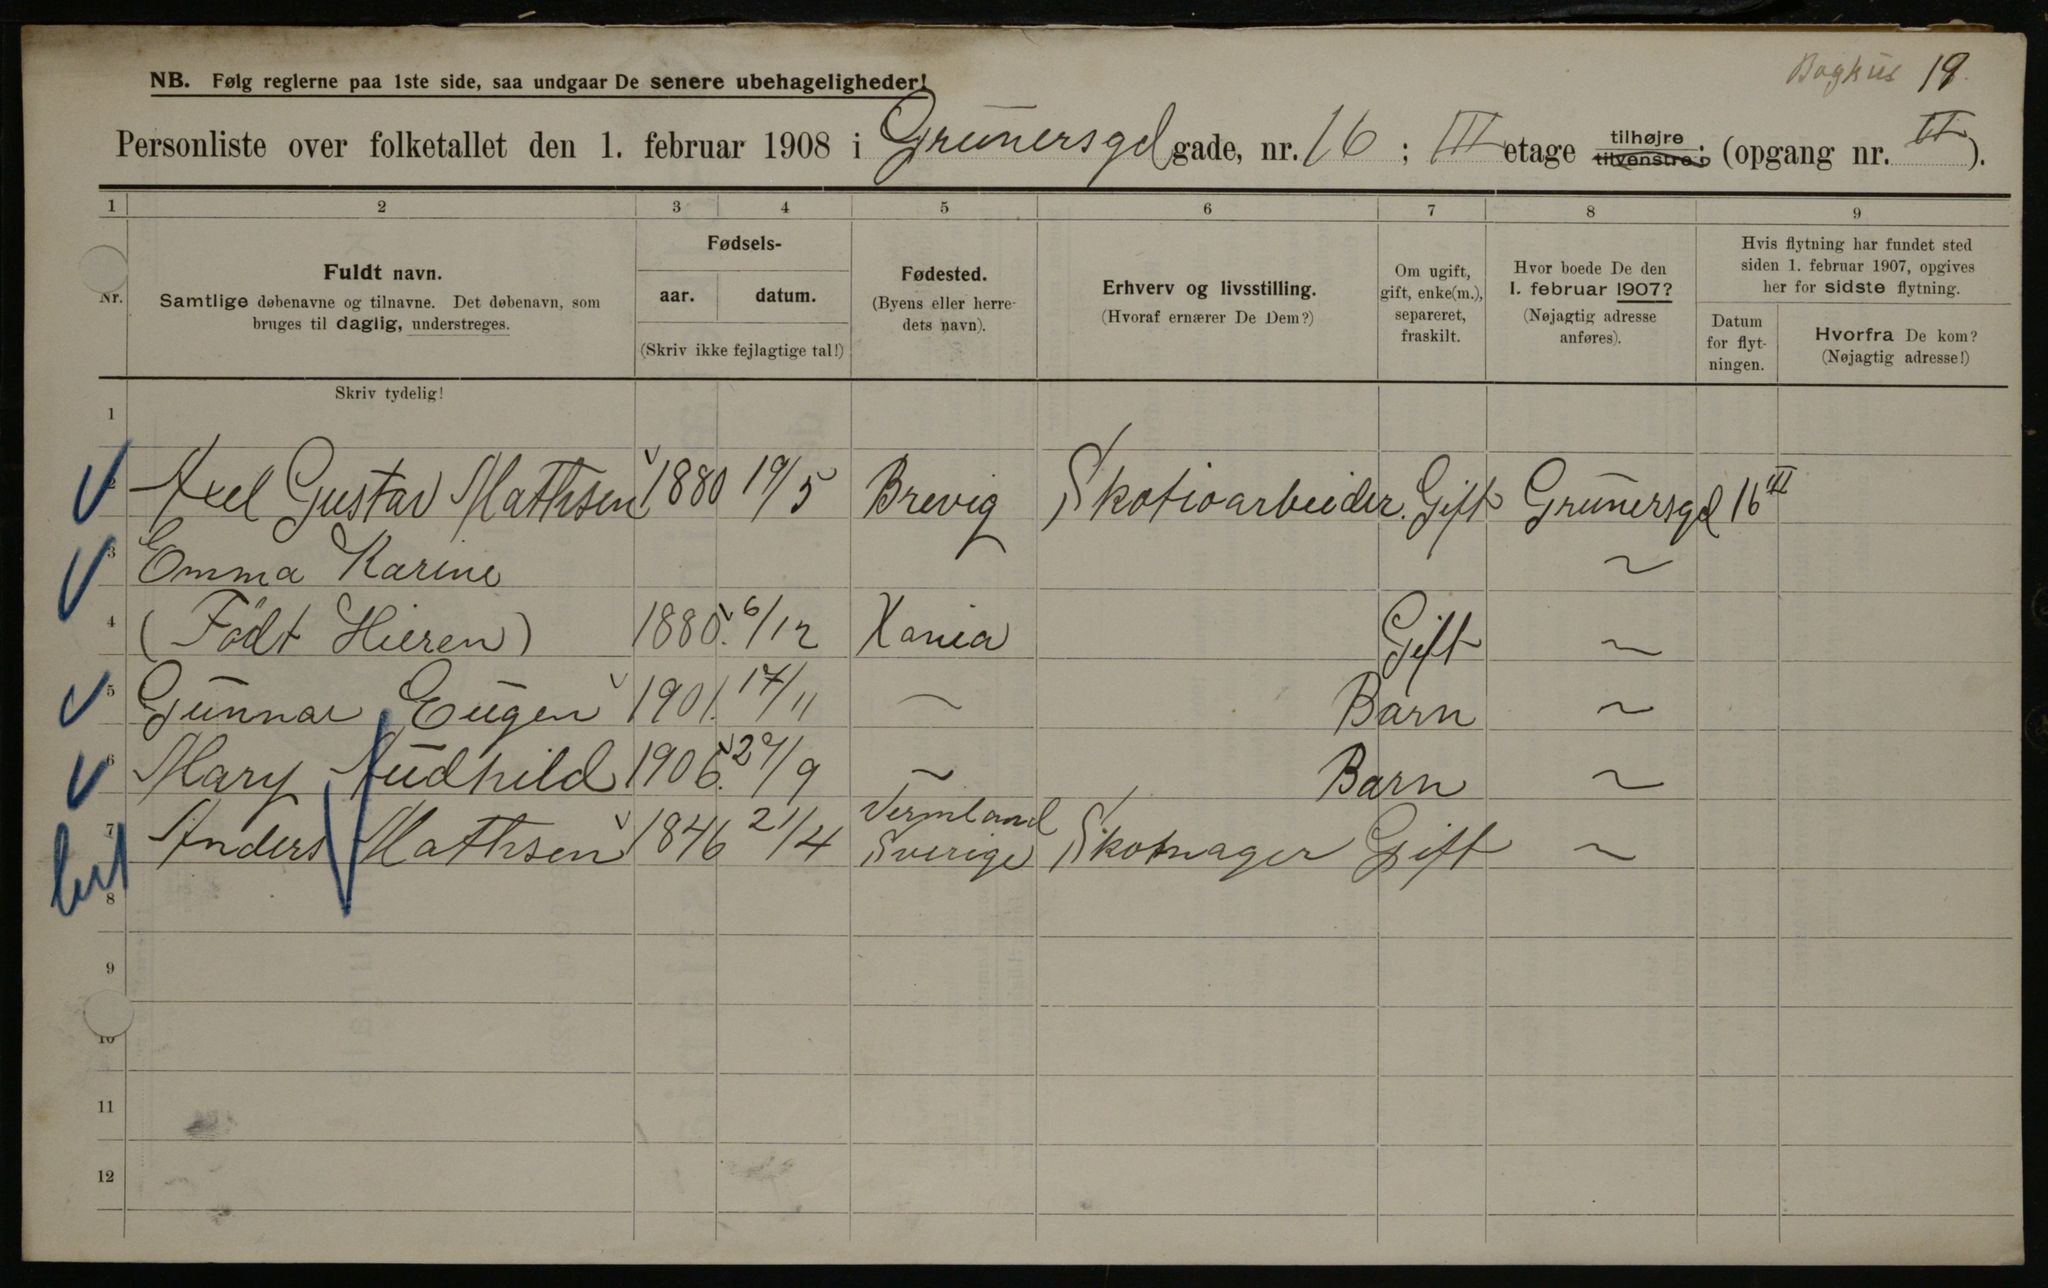 Baghus 19.
NB. Følg reglerne paa 1ste side, saa undgaar De senere ubehageligheder!
Personliste over folketallet den 1. februar 1908 i Grünersgd gade, nr. 16 ; III etage tilhøjre tilvenstre ; (opgang nr. II ).
1 2 3 4 5 6 7 8 9
Nr.
Fuldt navn.
Samtlige døbenavne og tilnavne. Det døbenavn, som
bruges til daglig, understreges.
Fødsels-
aar. datum.
(Skriv ikke fejlagtige tal!)
Fødested.
(Byens eller herre-
dets navn).
Erhverv og livsstilling.
(Hvoraf ernærer De Dem?)
Om ugift,
gift, enke(m.),
separeret,
fraskilt.
Hvor boede De den
1. februar 1907?
(Nøjagtig adresse
anføres).
Hvis flytning har fundet sted
siden 1. februar 1907, opgives
her for sidste flytning.
Datum
for flyt-
ningen.
Hvorfra De kom?
(Nøjagtig adresse!)
Skriv tydelig!
1
2 Axel Gustav Mathsen 1880 19/5 Brevig Skotioarbeider. Gift Grünersgd 16 III
3 Emma Karine ~
4 (Födt Hieren) 1880. 6/12 Xania Gift ~
5 Gunnar Eugen 1901. 17/11 ~ Barn ~
6 Mary Audhild 1906. 29/9 ~ Barn ~
7 Anders Mathsen 1846 21/4 Vermland Sverige Skomager Gift ~
8
9
10
11
12